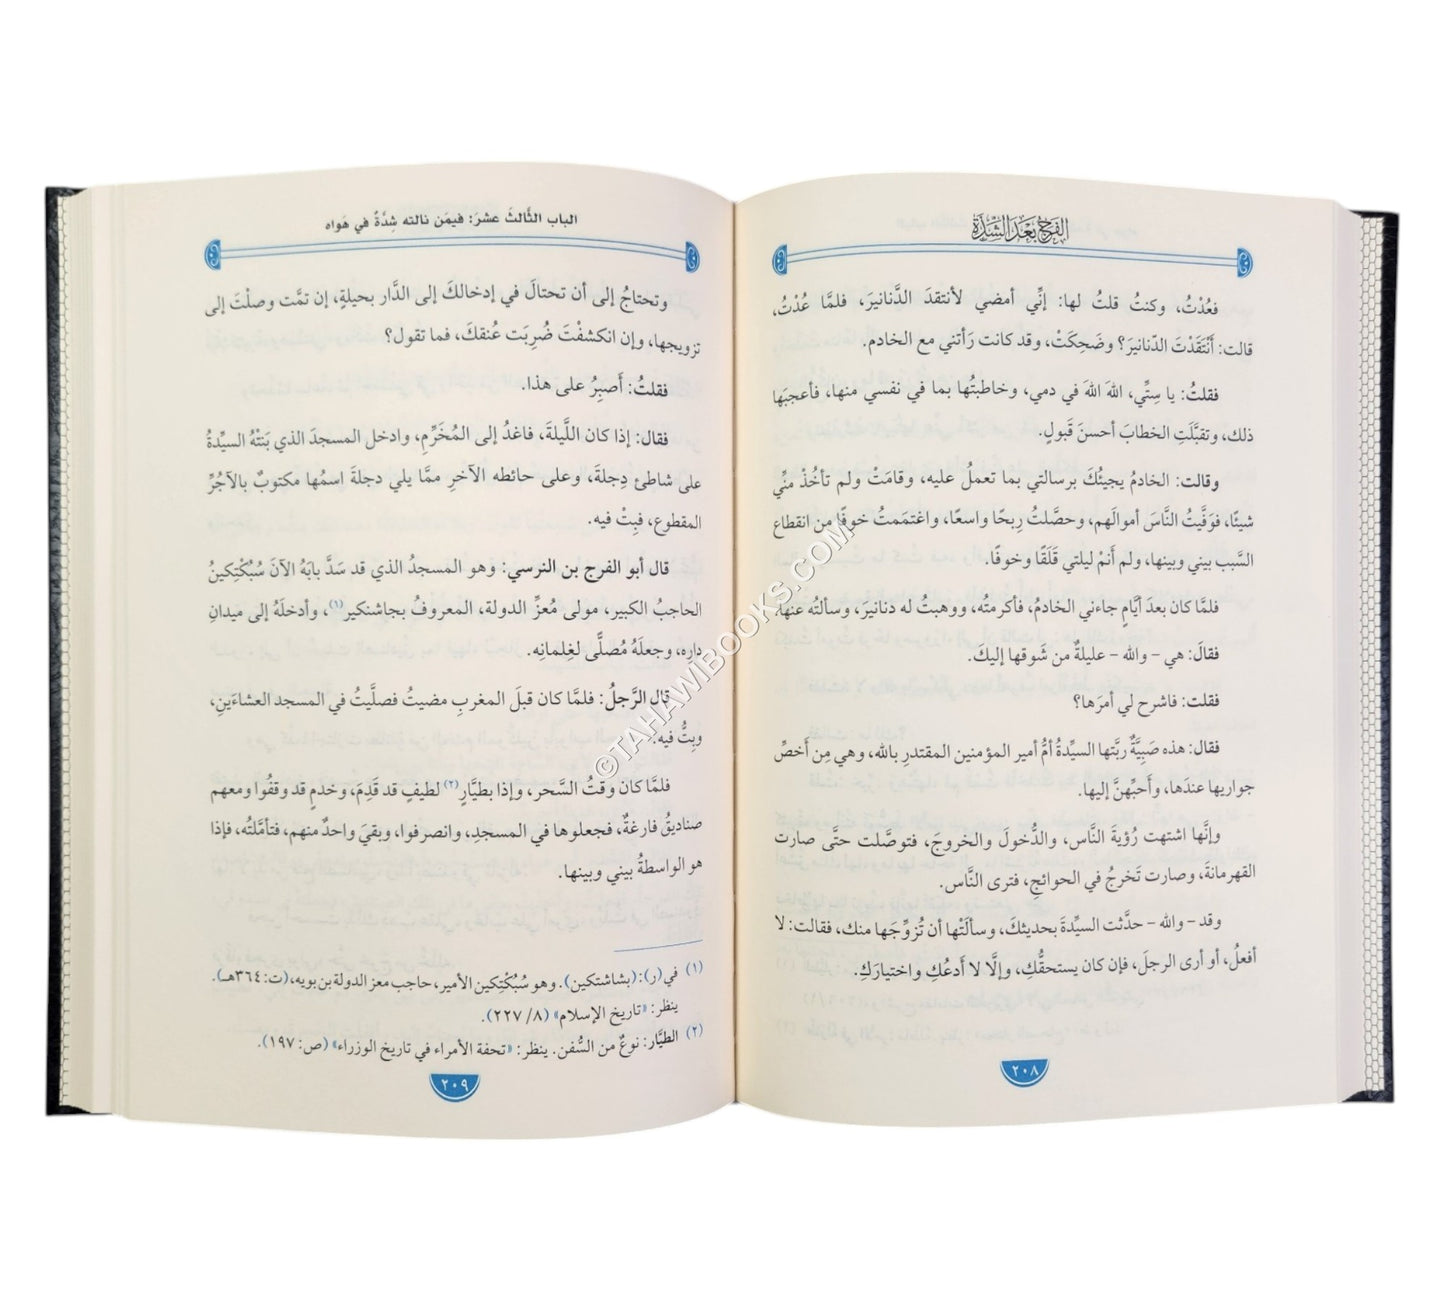 الفرج بعد الشدة
فعُدْتُ، وكنتُ قلتُ لها: إنِّي أمضي لأنتقدَ الدَّنانيرَ، فلمَّا عُدْتُ،
قالت: أَنْتَقَدْتَ الدّنانيرَ؟ وضَحِكَتْ، وقد كانت رَأتني مع الخادم.
فقلتُ: يا سِتِّي، اللهَ اللهَ في دمي، وخاطبتُها بما في نفسي منها، فأعجبَها
ذلك، وتقبَّلَتِ الخطابَ أحسنَ قَبولٍ.
وقالت: الخادمُ يجيئُكَ برسالتي بما تعملُ عليه، وقامَتْ ولم تأخُذْ منِّي
شيئًا، فوَفَّيتُ النَّاسَ أموالَهم، وحصَّلتُ رِبحًا واسعًا، واغتمَمتُ خوفًا من انقطاع
السَّبب بيني وبينها، ولم أَنمْ ليلتي قَلَقًا وخوفًا.
فلمَّا كان بعدَ أيَّامٍ جاءني الخادمُ، فأكرمتُه، ووهبتُ له دنانيرَ، وسألتُه عنها،
فقالَ: هي – والله – عليلةٌ من شَوقها إليكَ.
فقلت: فاشرح لي أمرَها؟
فقال: هذه صَبِيَّةٌ ربَّتها السيِّدةُ أمُّ أمير المؤمنين المقتدرِ بالله، وهي مِن أخصِّ
جواريها عندَها، وأَحبِّهنَّ إليها.
وإنَّها اشتهت رُؤيةَ النَّاس، والدُّخولَ والخروجَ، فتوصَّلت حتَّى صارت
القهرمانةَ، وصارت تَخرجُ في الحوائجِ، فترى النَّاس.
وقد – والله – حدَّثت السيِّدةَ بحديثكَ، وسألَتْها أن تُزوِّجَها منك، فقالت: لا
أفعلُ، أو أرى الرجلَ، فإن كان يستحقُّكِ، وإلَّا لا أدعُكِ واختيارَكِ.
٢٠٨
الباب الثَّالثَ عشرَ: فيمَن نالته شِدَّةٌ في هَواه
وتحتاجُ إلى أن تحتالَ في إدخالكَ إلى الدَّار بحيلةٍ، إن تمَّت وصلْتَ إلى
تزويجها، وإن انكشفْتَ ضُرِبَت عُنقكَ، فما تقول؟
فقلتُ: أَصبِرُ على هذا.
فقال: إذا كان اللَّيلةَ، فاغدُ إلى المُخَرِّمِ، وادخل المسجدَ الذي بَنَتْهُ السيِّدةُ
على شاطئ دِجلةَ، وعلى حائطه الآخرِ ممَّا يلي دجلةَ اسمُها مكتوبٌ بالآجُرِّ
المقطوع، فبِتْ فيه.
قال أبو الفرج بن النرسي: وهو المسجدُ الذي قد سَدَّ بابَهُ الآنَ سُبُكْتِكينُ
الحاجبُ الكبير، مولى مُعزِّ الدولة، المعروفُ بجاشنكير(١)، وأدخلَهُ إلى ميدانِ
دارِه، وجعلَهُ مُصلًّى لغِلمانِه.
قال الرَّجلُ: فلمَّا كان قبلَ المغربِ مضيتُ فصلَّيتُ في المسجد العشاءَينِ،
وبِتُّ فيه.
فلمَّا كان وقتُ السَّحر، وإذا بطيَّارٍ(٢) لطيفٍ قد قَدِمَ، وخدمٍ قد وقفُوا ومعهم
صناديقُ فارغةٌ، فجعلوها في المسجدِ، وانصرفوا، وبقيَ واحدٌ منهم، فتأمَّلتُه، فإذا
هو الواسطةُ بيني وبينها.
(١) في (ر): (بشاشتكين). وهو سُبُكْتِكين الأمير، حاجب معز الدولة بن بويه، (ت: ٣٦٤هـ).
ينظر: «تاريخ الإسلام» (٨/ ٢٢٧).
(٢) الطيَّار: نوعٌ من السُّفن. ينظر: «تحفة الأمراء في تاريخ الوزراء» (ص: ١٩٧).
٢٠٩
©TAHAWIBOOKS.COM